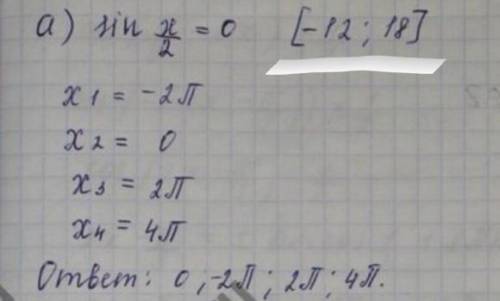 а) sin x/2 = 0 [-12; 18]
x1 = -2π
x2 = 0
x3 = 2π
x4 = 4π
Ответ: 0; -2π; 2π; 4π.